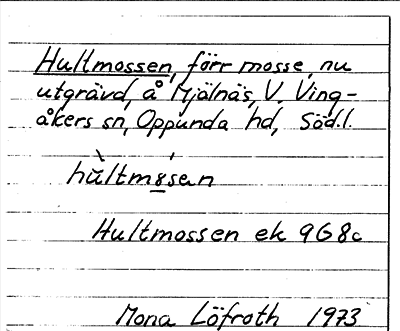 Hultmossen, förr mosse, nu
utgrävd, å Mjälnäs, V. Ving-
åkers sn, Oppunda hd, Söd.l.
hùltmósan
Hultmossen ek 9G8c
Mona Löfroth 1973